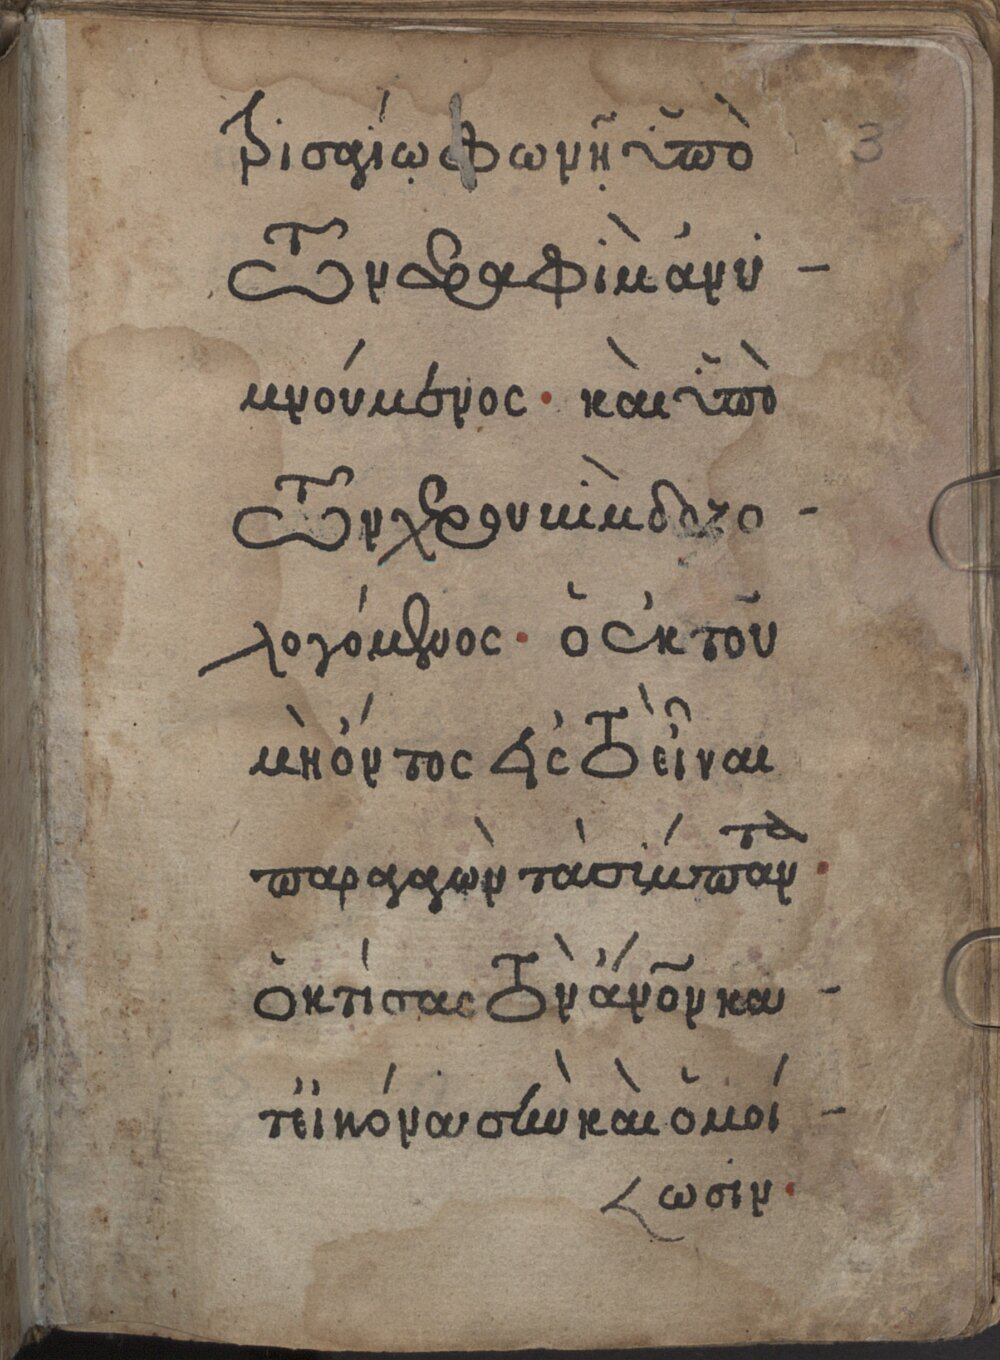 3
τρισαγίῳ φωνῇ ὑπὸ
τῶν σεραφὶμ ἀνυ -
μνούμενος · καὶ ὑπὸ
τῶν χερουβὶμ δοξο -
λογούμενος · ὁ ἐκ τοῦ
μὴ ὄντος εἰς τὸ εἶναι
παραγαγὼν τὰ σύμπαντα ·
ὁ κτίσας τὸν ἄνον κα -
τ εἰκόνα σὴν καὶ ὁμοί -
ωσιν ·